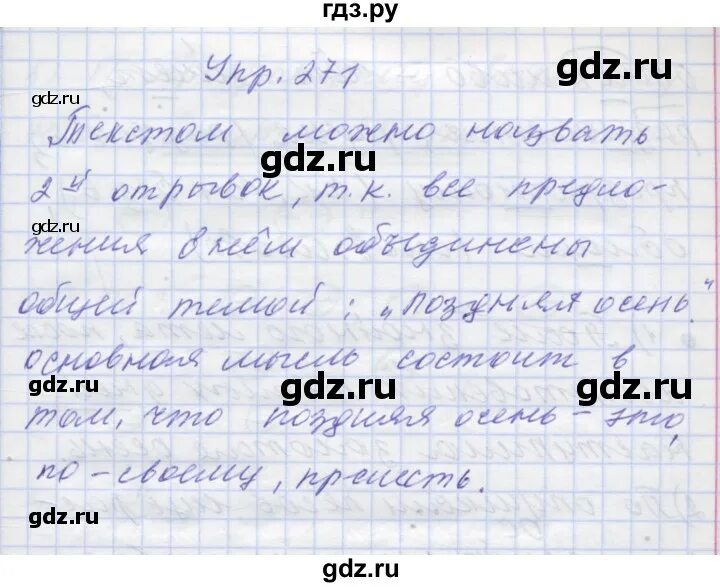 гдз.ру
Упр. 271
gdz.ru
gdz.ru
Текстом можно назвать
gdz.ru
2й отрывок, т.к. все предло-
жения в нём объединены
gdz.ru
общей темой: "поздняя осень"
основная мысль состоит в
gdz.ru
gdz.ru
том, что поздняя осень - это,
по-своему, прелесть.
gdz.ru
gdz.ru